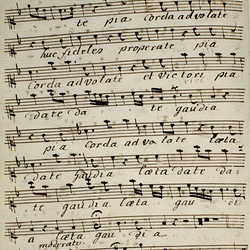 te pia corda advolate
huc fideles properate pia
corda advolate et victori pia
date da te gaudia
pia corda advolate læta
date gaudia læta date da
te gaudia læta gau di
a læta gau di a.
moderato.